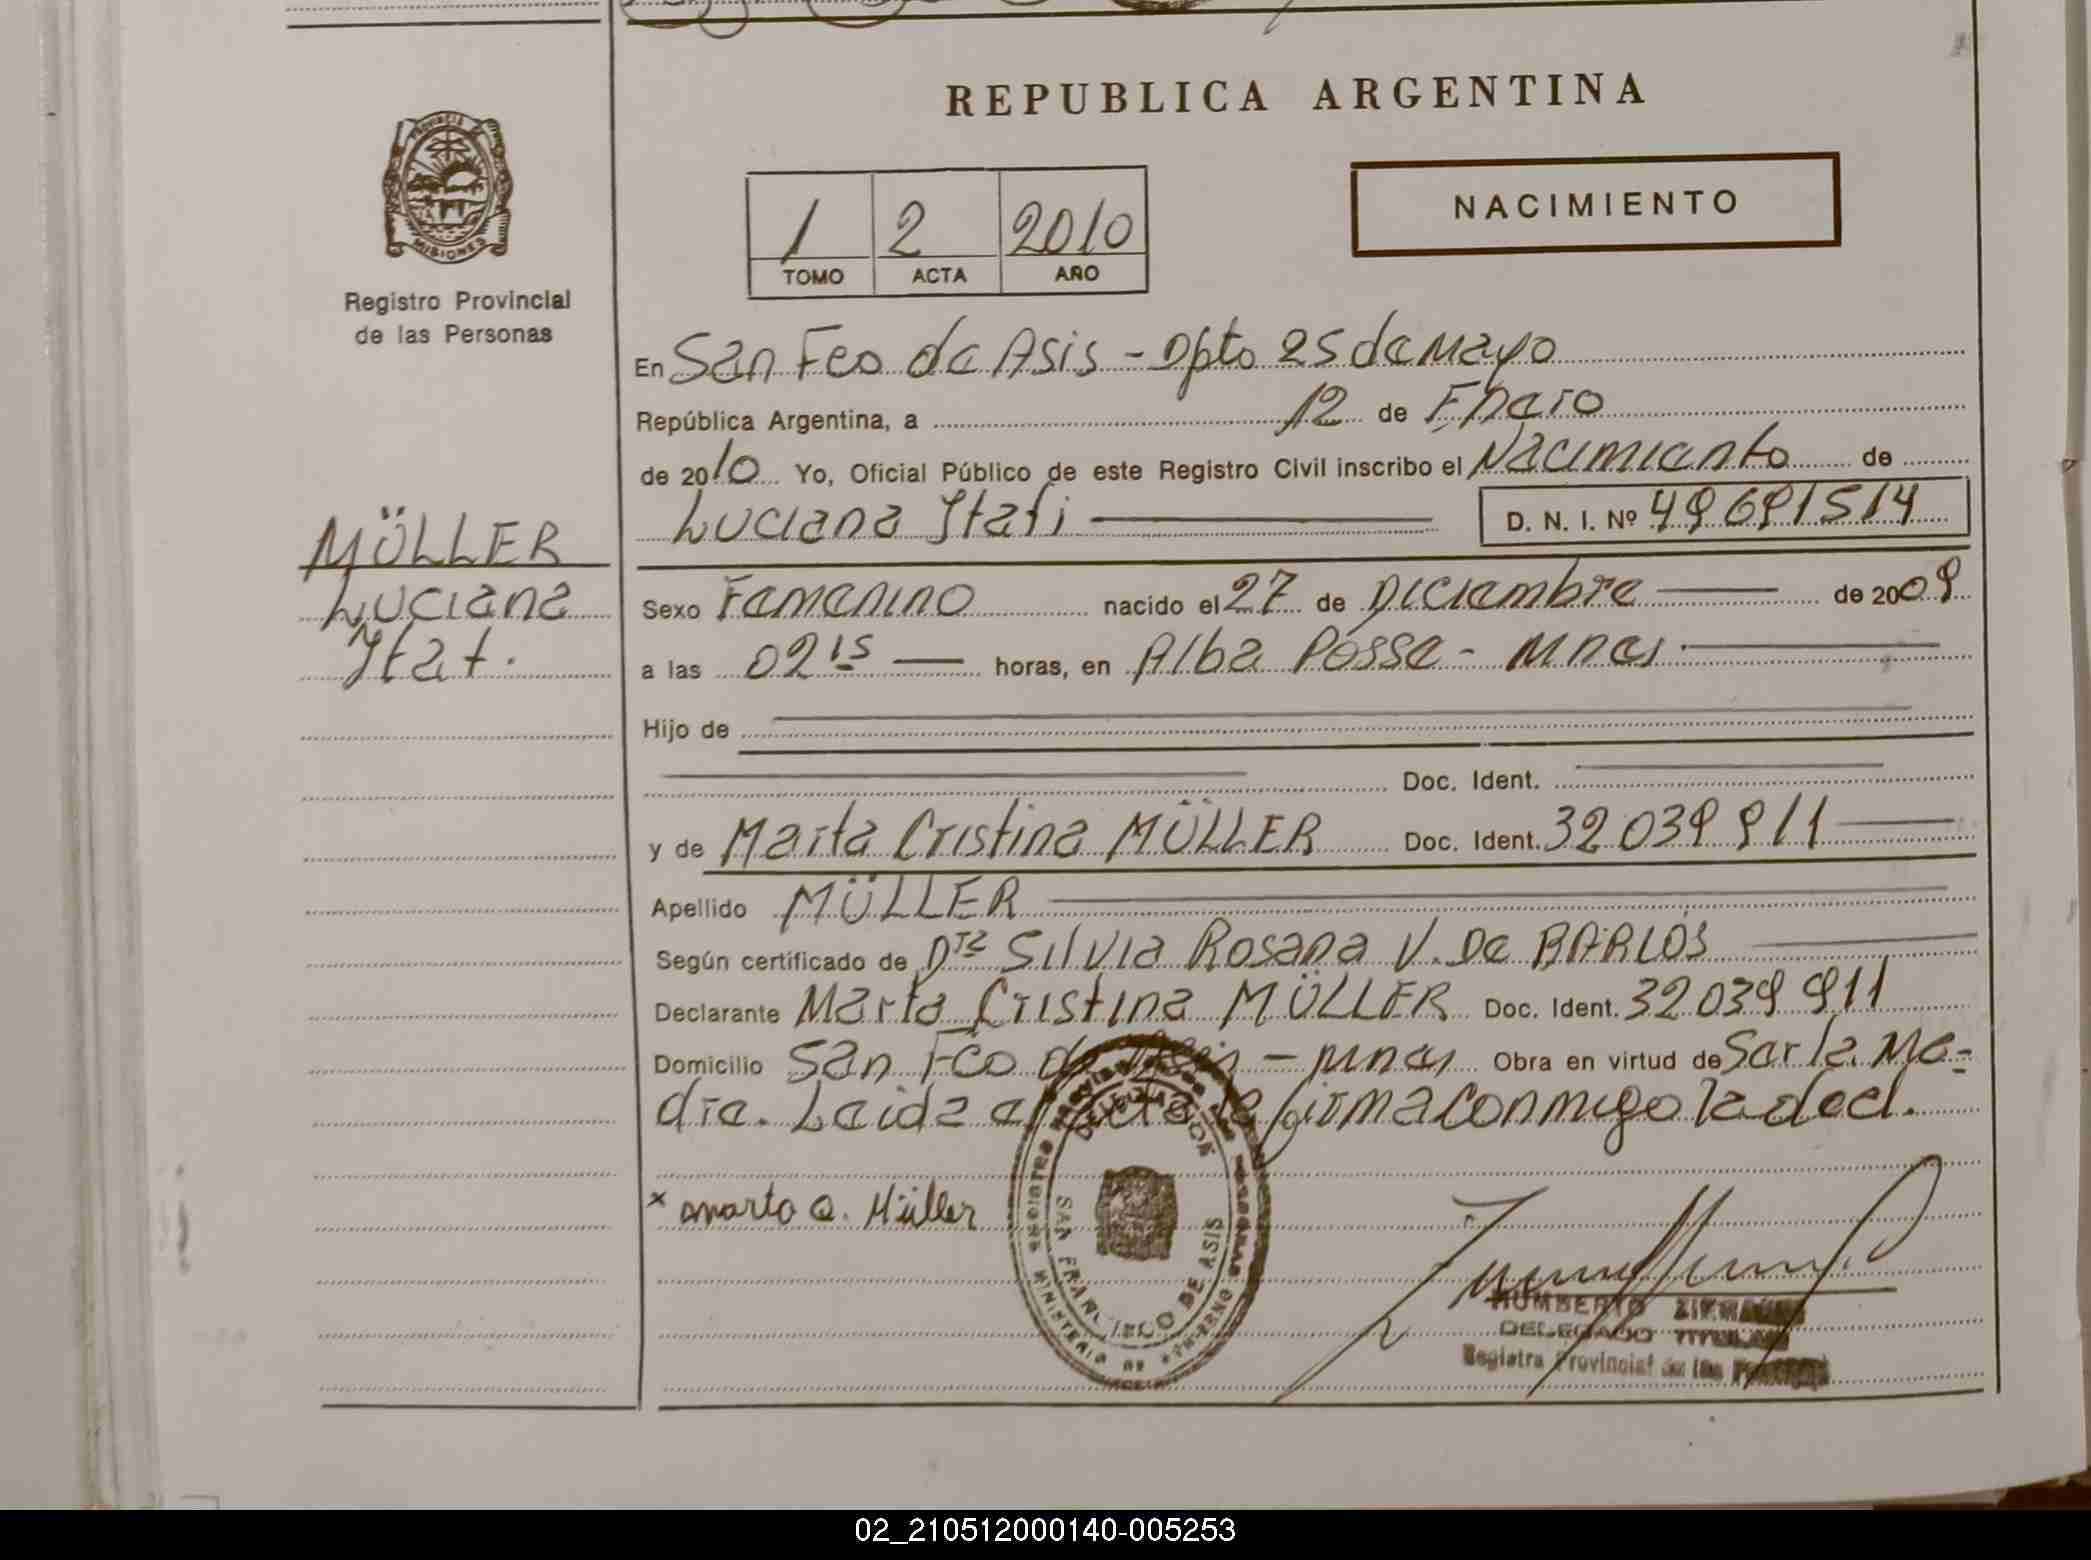 REPUBLICA ARGENTINA
PROVINCIA DE
MISIONES
Registro Provincial
de las Personas
1 2 2010
TOMO ACTA AÑO
NACIMIENTO
En San Fco de Asis - Dpto 25 de Mayo
República Argentina, a 12 de Enero
de 2010 Yo, Oficial Público de este Registro Civil inscribo el Nacimiento de
Luciana Itatí D. N. I. Nº 49691514
MÜLLER
Luciana
Itat.
Sexo Femenino nacido el 27 de Diciembre de 2009
a las 02 15 horas, en Alba Posse - Mnes
Hijo de
Doc. Ident.
y de Marta Cristina MÜLLER Doc. Ident. 32 039 911
Apellido MÜLLER
Según certificado de Dra Silvia Rosana V. De BARLOS
Declarante Marta Cristina MÜLLER Doc. Ident. 32 039 911
Domicilio San Fco de Asis - Mnes Obra en virtud de Ser la Ma-
dre. Leida el acta la firma conmigo la decl.
x Marta C. Müller
SAN FRANCISCO DE ASIS
MINISTERIO DE GOBIERNO
HUMBERTO
DELEGADO TITULAR
Registro Provincial de las Personas
02_210512000140-005253